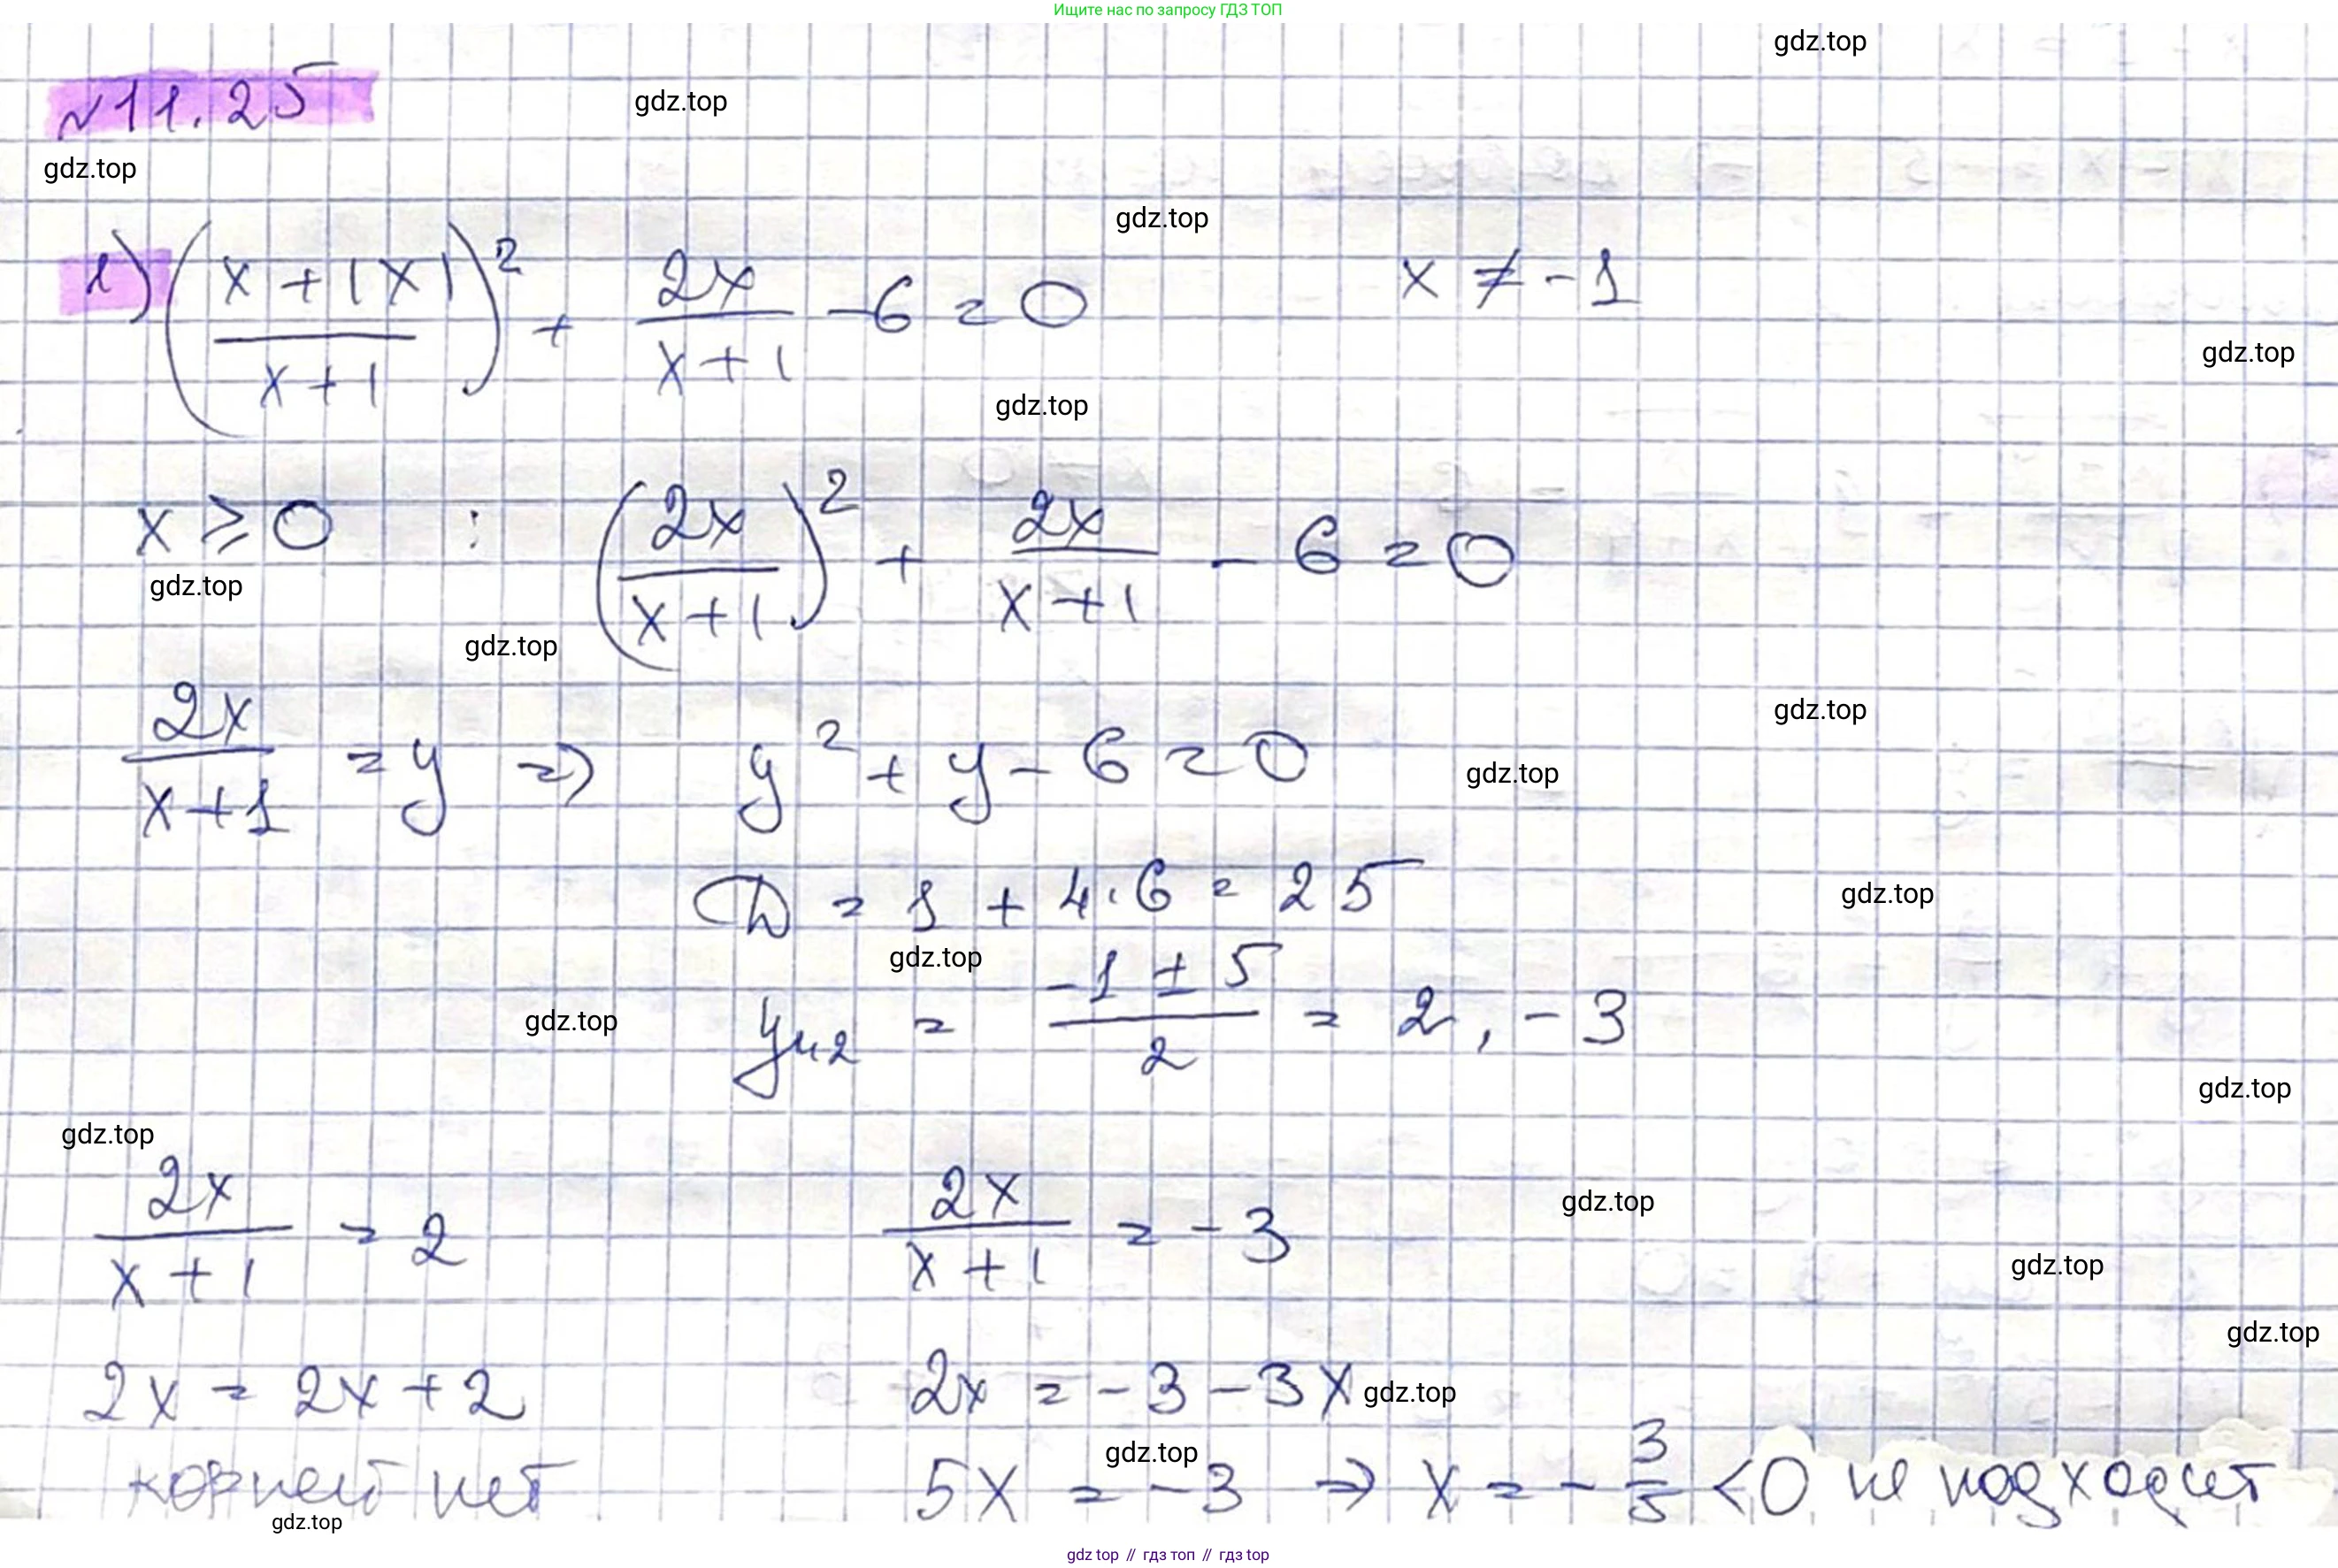 Ищите нас по запросу ГДЗ ТОП
gdz.top
№11.25
gdz.top
gdz.top
gdz.top
1) ((x+|x|)/(x+1))² + 2x/(x+1) - 6 = 0    x ≠ -1
gdz.top
gdz.top
x ⩾ 0 : (2x/(x+1))² + 2x/(x+1) - 6 = 0
gdz.top
gdz.top
gdz.top
2x/(x+1) = y => y² + y - 6 = 0
gdz.top
D = 1 + 4·6 = 25
gdz.top
gdz.top
y₁,₂ = (-1 ± 5)/2 = 2, -3
gdz.top
gdz.top
gdz.top
2x/(x+1) = 2    2x/(x+1) = -3
gdz.top
gdz.top
gdz.top
2x = 2x + 2    2x = -3 - 3x
gdz.top
gdz.top
корней нет    5x = -3 => x = -3/5 < 0 не подходит
gdz.top
gdz top // гдз топ // гдз top